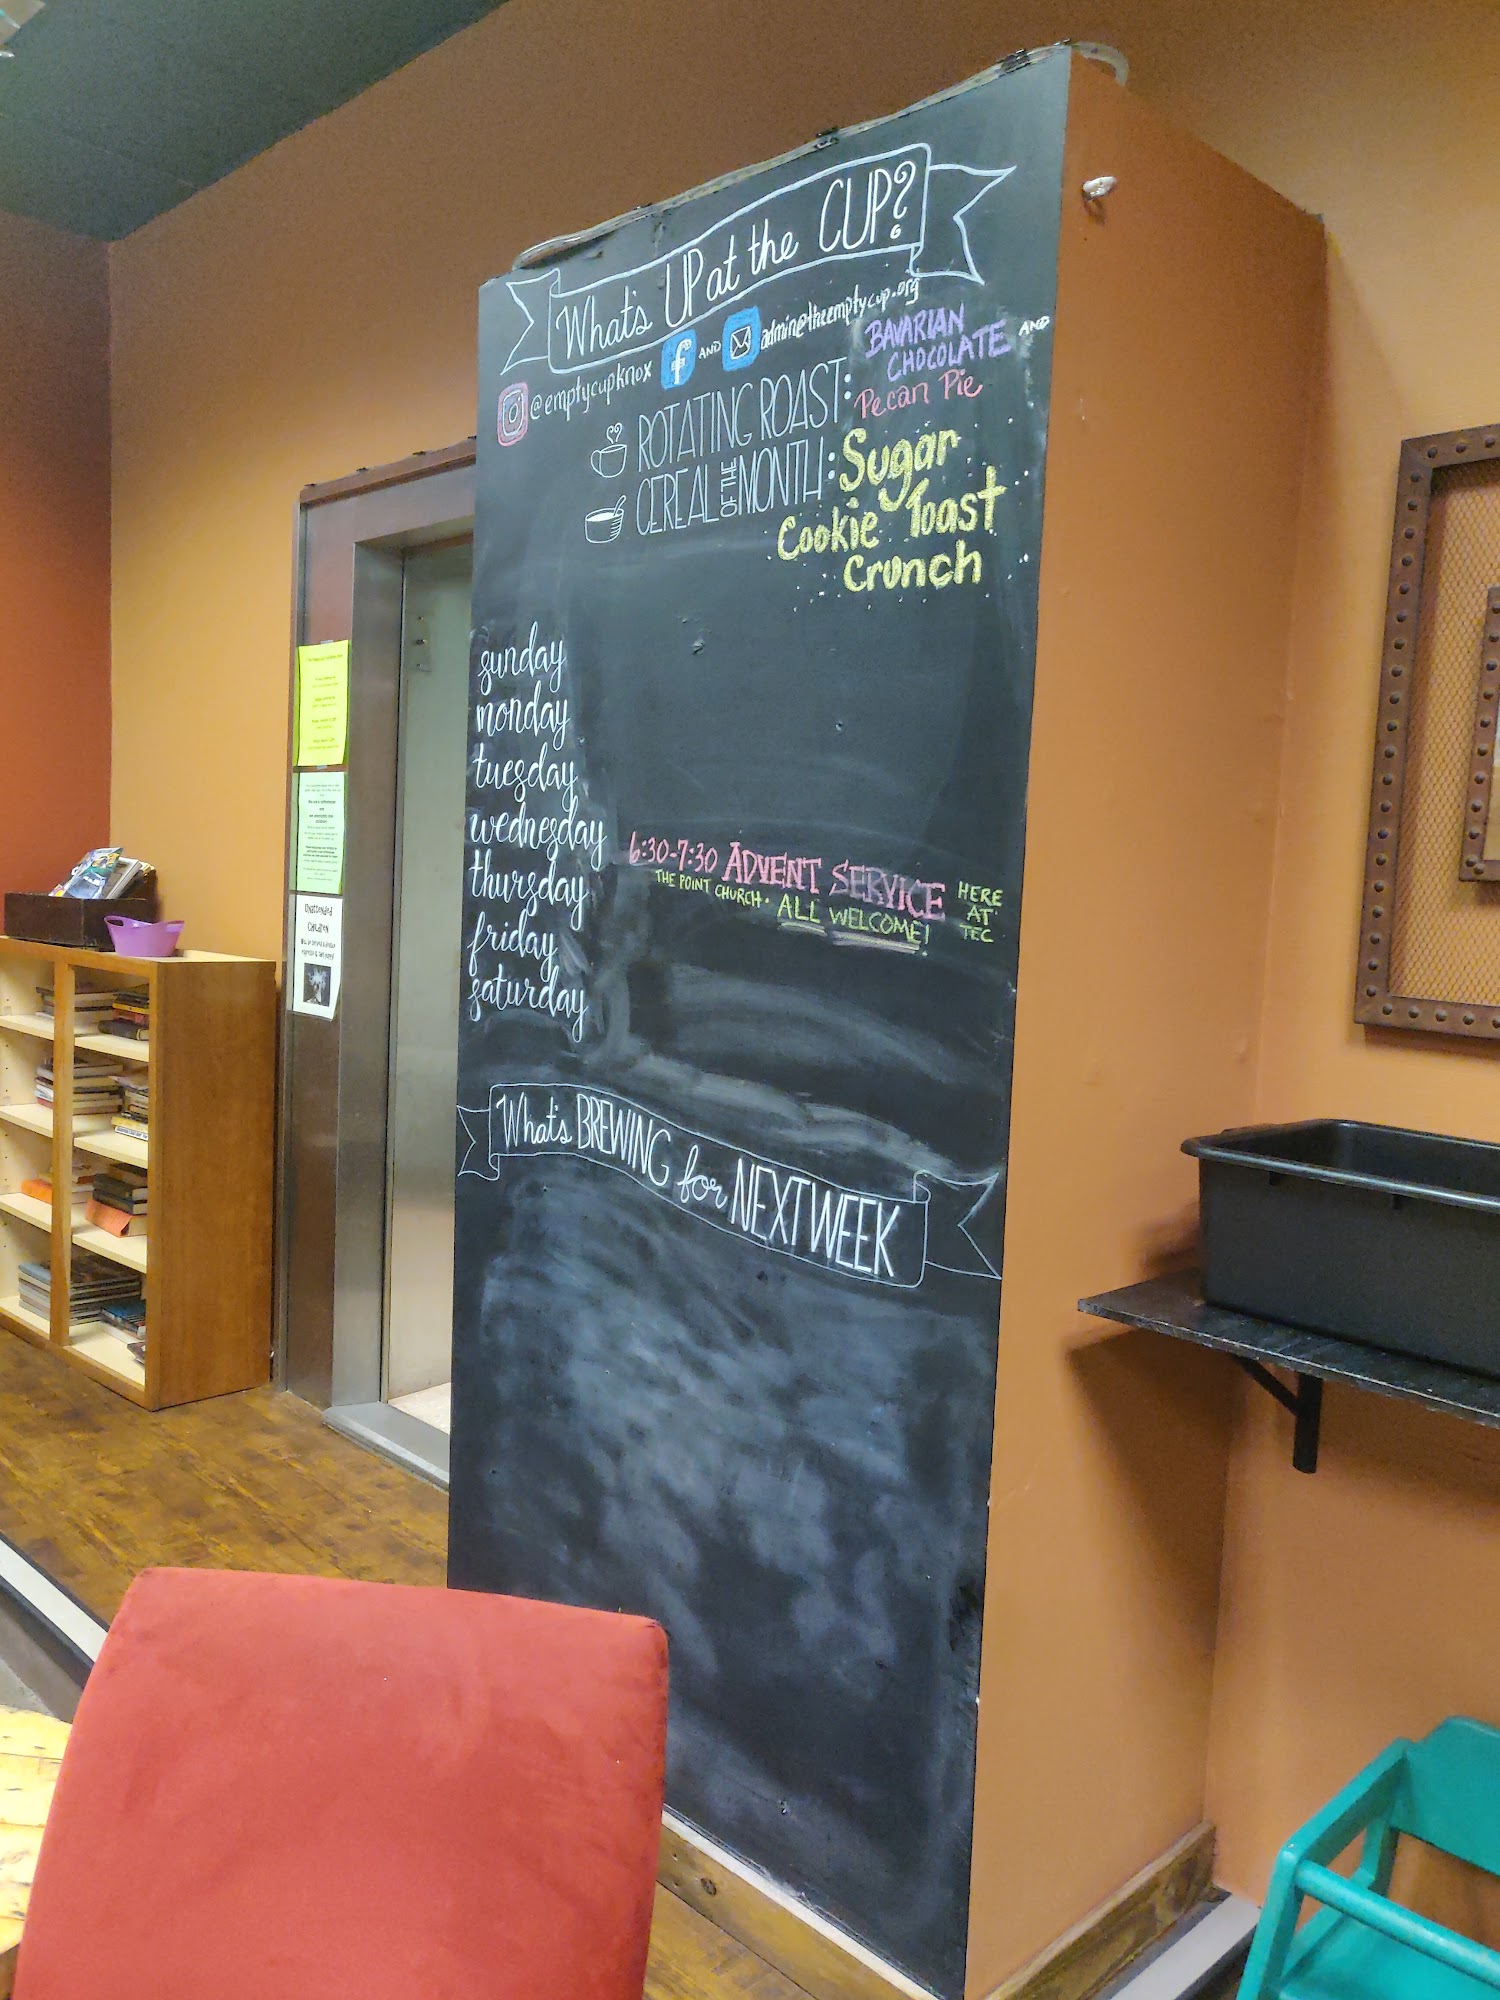 What's UP at the CUP?
@emptycupknox f AND admin@theemptycup.org
ROTATING ROAST: BAVARIAN CHOCOLATE AND
Pecan Pie
CEREAL OF THE MONTH: Sugar
Cookie Toast
Crunch
sunday
monday
tuesday
wednesday 6:30-7:30 ADVENT SERVICE HERE AT TEC
THE POINT CHURCH. ALL WELCOME!
thursday
friday
saturday
What's BREWING for NEXT WEEK
Unattended
Children